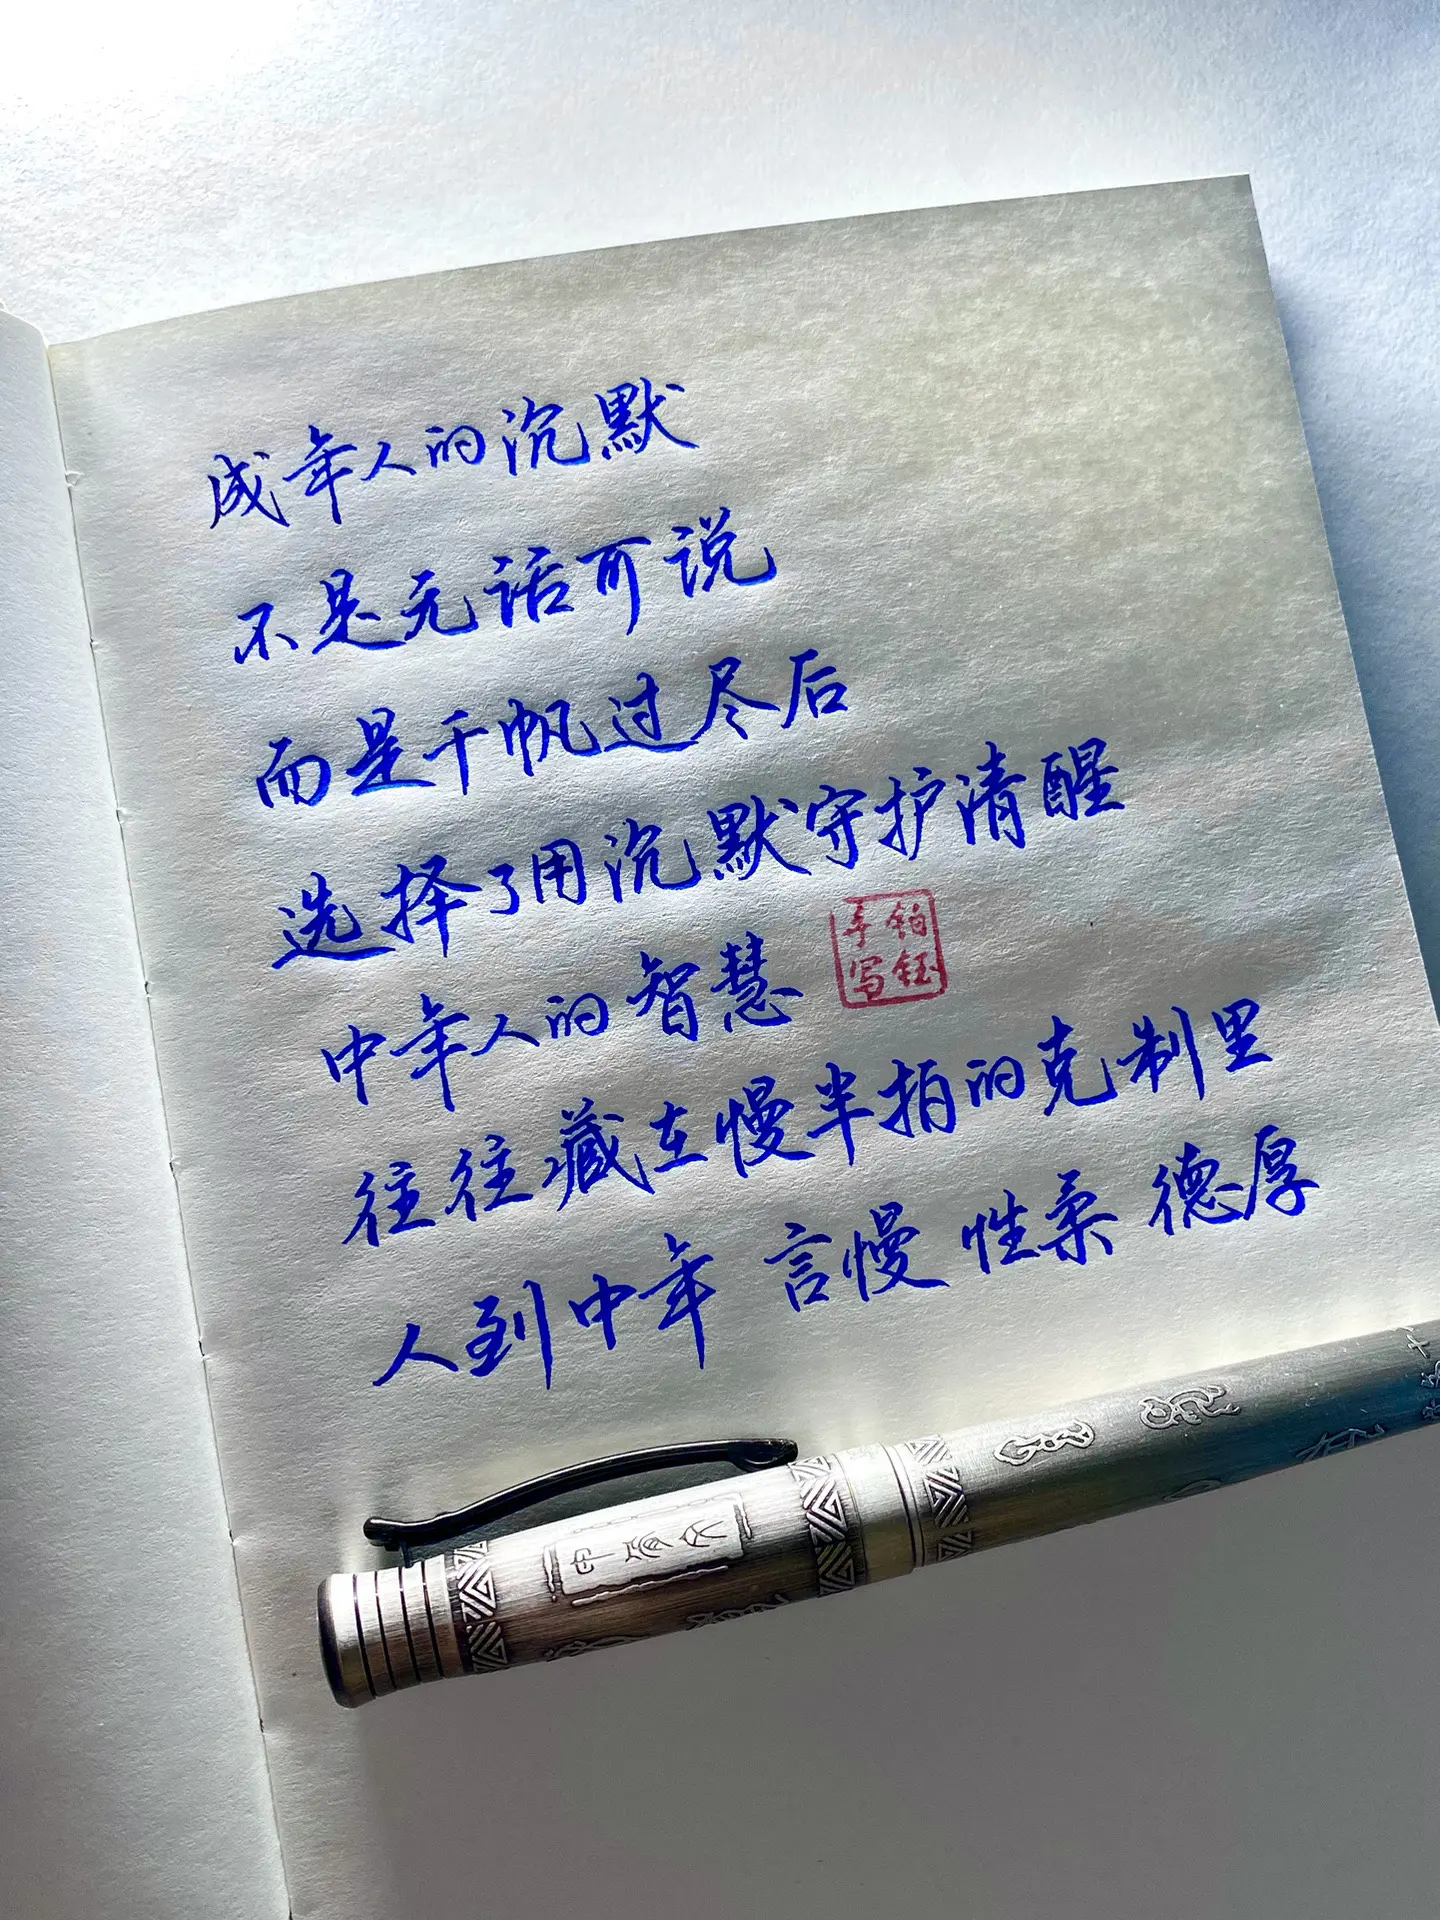 成年人的沉默
不是无话可说
而是千帆过尽后
选择了用沉默守护清醒
中年人的智慧
铂钰
手写
往往藏在慢半拍的克制里
人到中年 言慢 性柔 德厚